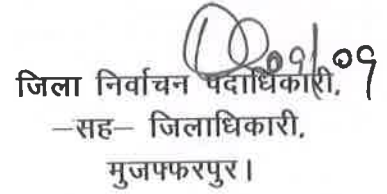 09/09
जिला निर्वाचन पदाधिकारी,
–सह– जिलाधिकारी,
मुजफ्फरपुर।